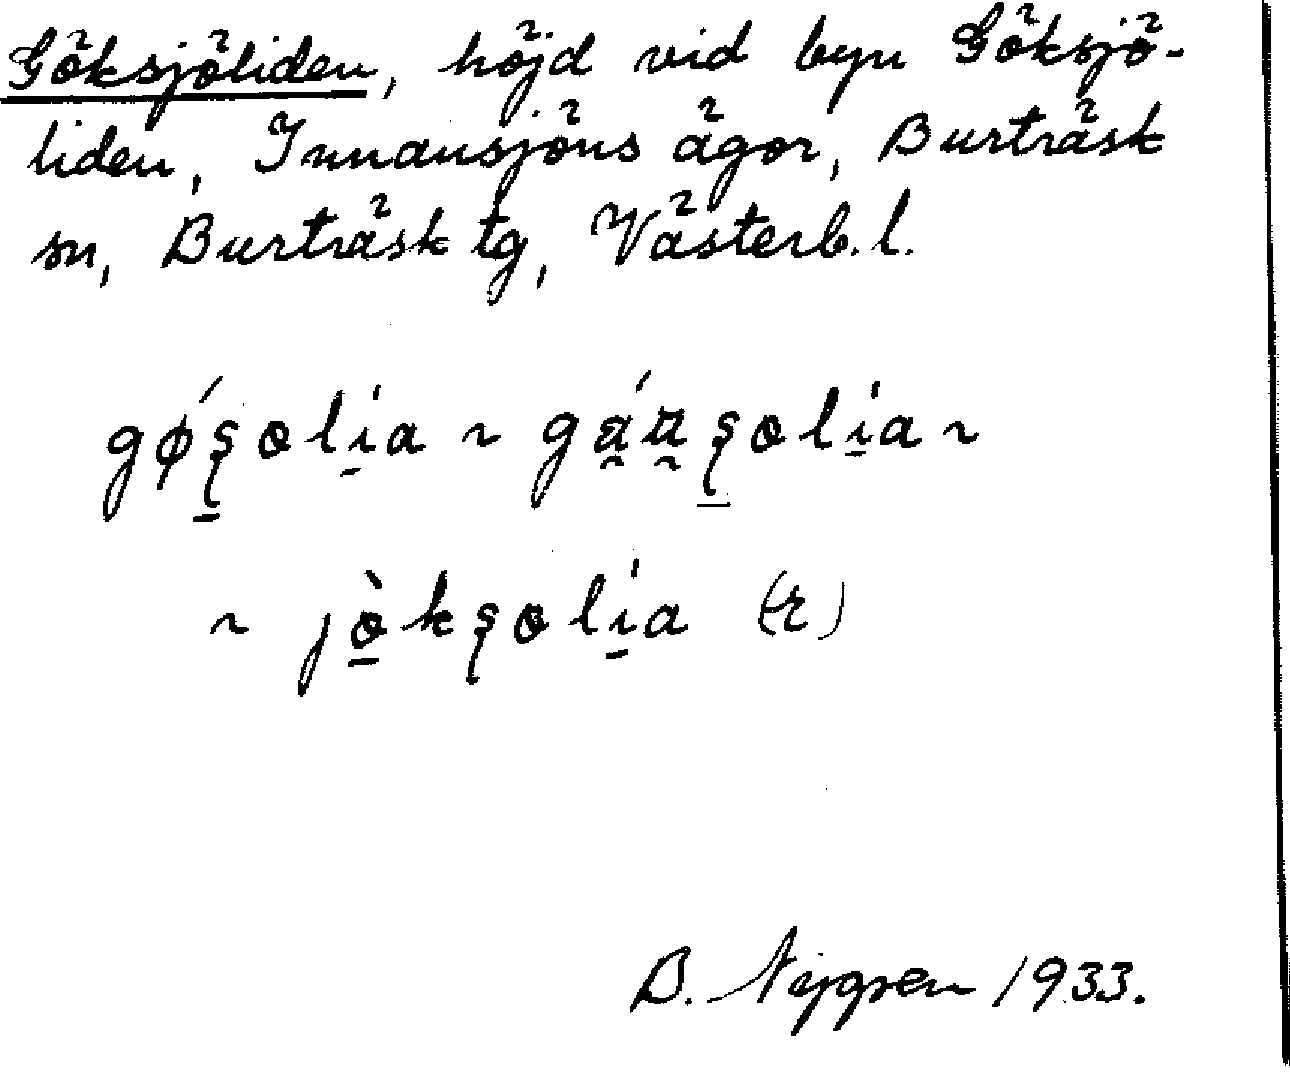 Göksjöliden, höjd vid byn Göksjö-
liden, Innansjöns ägor, Burträsk
sn, Burträsk tg, Västerb. l.
gǿʂɷli̠a ~ gá̰ṵʂɷli̠a ~
~ jɷ̠̀kʂɷli̠a (-r)
B. Nygren 1933.